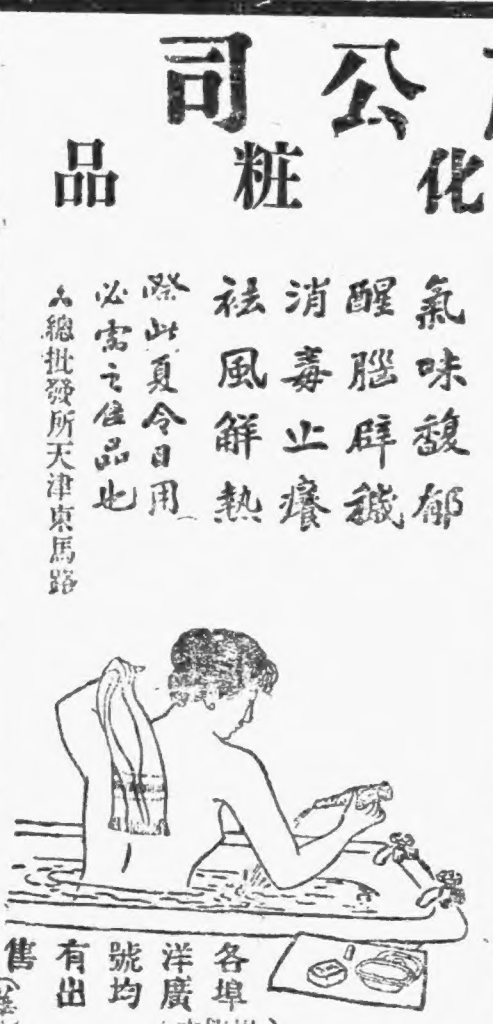 公司
化粧品
氣味馥郁
醒腦辟穢
消毒止癢
祛風解熱
際此夏令日用
必需之佳品也
總批發所天津東馬路
各埠
洋廣
號均
有出
售